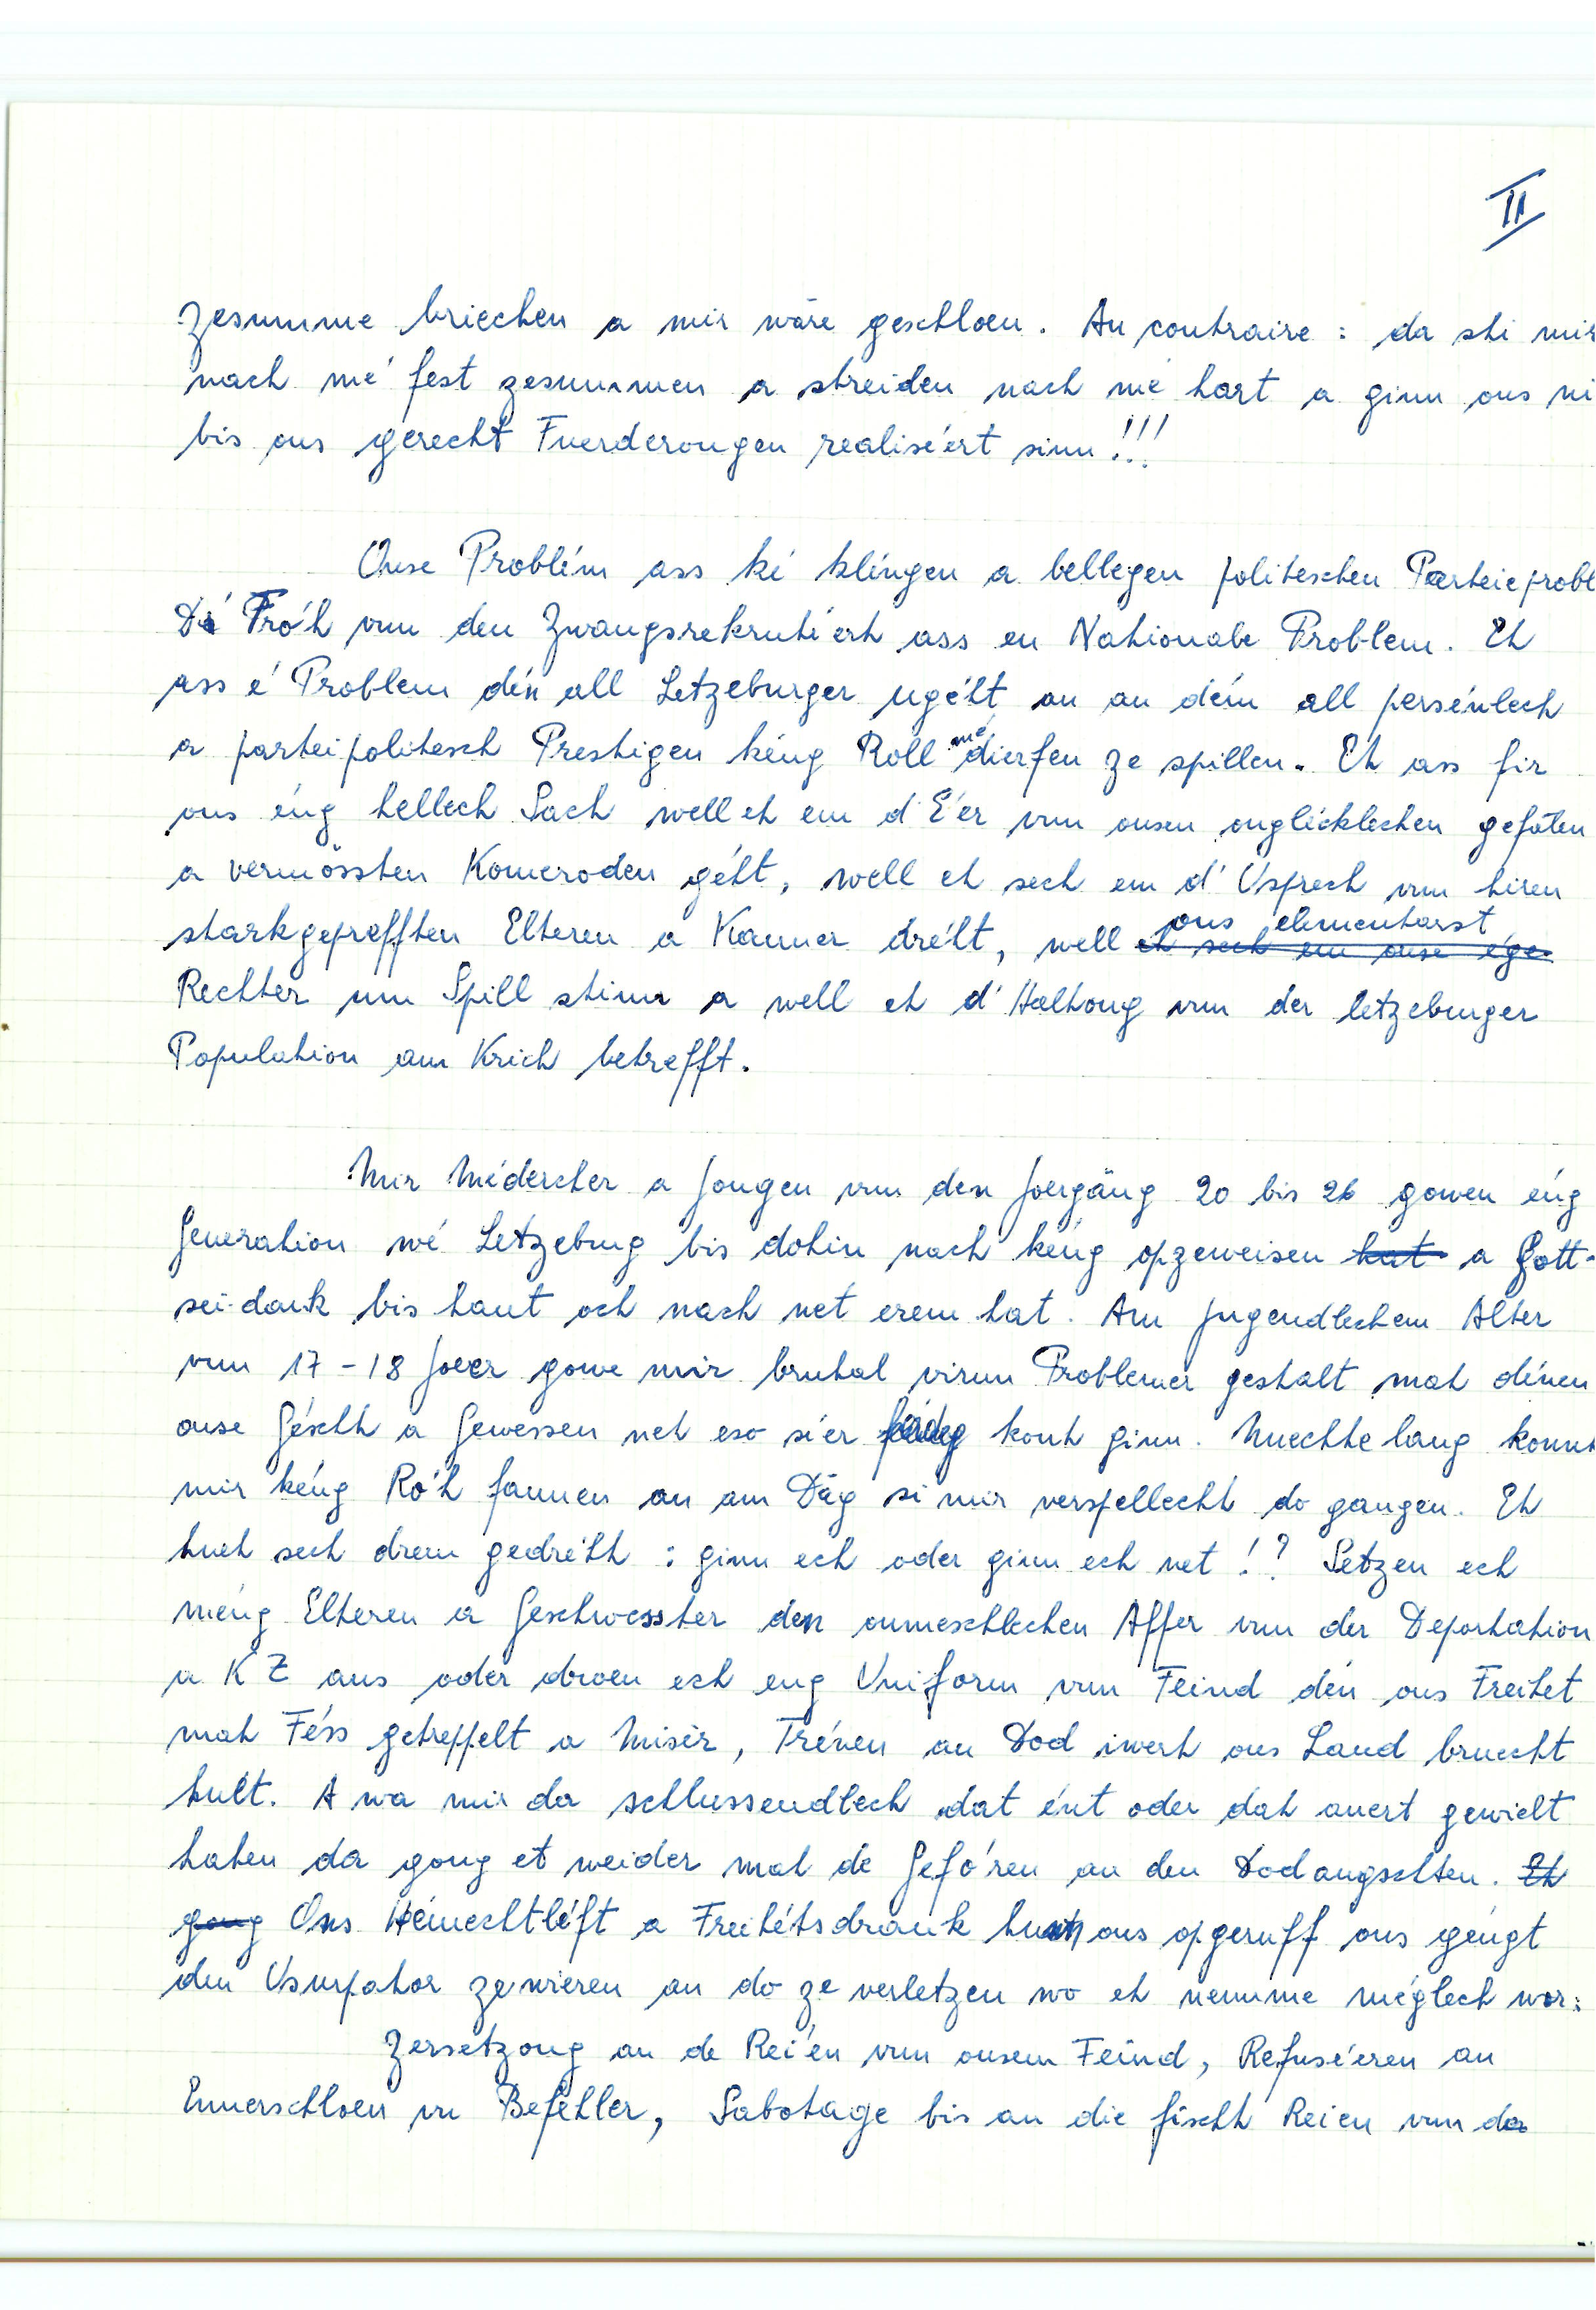 II
zesumme briechen a mir wäre geschloen. Au contraire: da sti mir
nach mé fest zesummen a streiden nach mé hart a ginn ons ni
bis ons gerecht Fuerderongen realiséert sinn!!!
Onse Problém ass ké kléngen a bellegen politeschen Parteieprobl
Dé Fró'h vun den Zwangsrekrutéert ass en Nationale Problem. Et
ass é Problem dén all Letzeburger ugéht an an dém all persénlech
a parteipolitesch Prestigen kéng Roll mé dierfen ze spillen. Et ass fir
ons éng hellech Sach well et em d'Éer vun onsen onglécklechen gefalen
a vermössten Komeroden géht, well et sech em d'Usprech vun hiren
starkgeprefften Elteren a Kanner dréht, well ons elementarst
et sech em onse ége
Rechter um Spill stinn a well et d'Haltong vun der letzeburger
Population am Krich betrefft.
Mir Médercher a Jongen vun den Joergäng 20 bis 26 gowen éng
Generation wé Letzeburg bis dohin nach kéng opzeweisen hat a Gott-
sei-dank bis haut och nach net erem hat. Am Jugendlechem Alter
vun 17-18 Joer gowe mir brutal virun Problemer gestalt mat dénen
onse Géscht a Gewessen net eso sier färdeg kont ginn. Nuechtelang konnt
mir kéng Ró'h fannen an am Dag si mir verspellecht do gangen. Et
huet sech drem gedréht: ginn ech oder ginn ech net!? Setzen ech
méng Elteren a Geschwesster den onmeschlechen Affer vun der Deportation
a KZ aus oder droen ech eng Uniform vum Feind dén ons Freihet
mat Féss getreppelt a Misèr, Trénen an Dod iwert ons Land bruecht
huet. A wa mir da schlussendlech dat ént oder dat anert gewielt
haten da gong et weider mat de Gefó'ren an den Dodangschten. Et
gong Ons Hémechtléft a Freihétsdrank hun ons opgeruff ons géngt
den Usurpator zewieren an do ze verletzen wo et nemme méglech wor:
Zersetzong an de Reién vun onsem Feind, Refuséeren an
Ennerschloen vu Befehler, Sabotage bis an die fischt Reien vun da